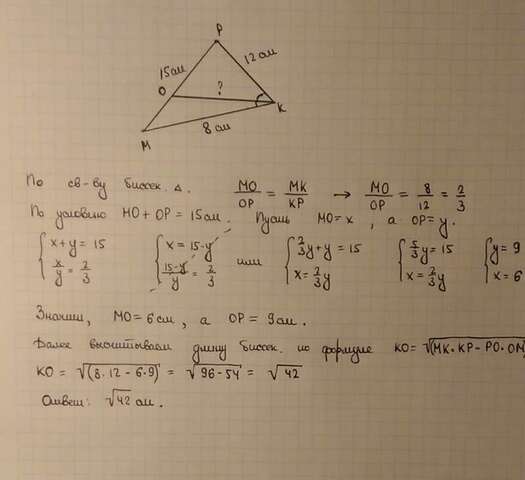 P
15 см
12 см
O
?
K
M
8 см
По св-ву биссек. △. MO/OP = MK/KP → MO/OP = 8/12 = 2/3
По условию MO + OP = 15 см. Пусть MO = x, а OP = y.
{x + y = 15 {x = 15 - y или {2/3y + y = 15 {5/3y = 15 {y = 9
{x/y = 2/3 {15 - y/y = 2/3 {x = 2/3y {x = 2/3y {x = 6
Значит, MO = 6 см, а OP = 9 см.
Далее высчитываем длину биссек. по формуле KO = √(MK · KP - PO · OM)
KO = √(8 · 12 - 6 · 9) = √96 - 54 = √42
Ответ: √42 см.